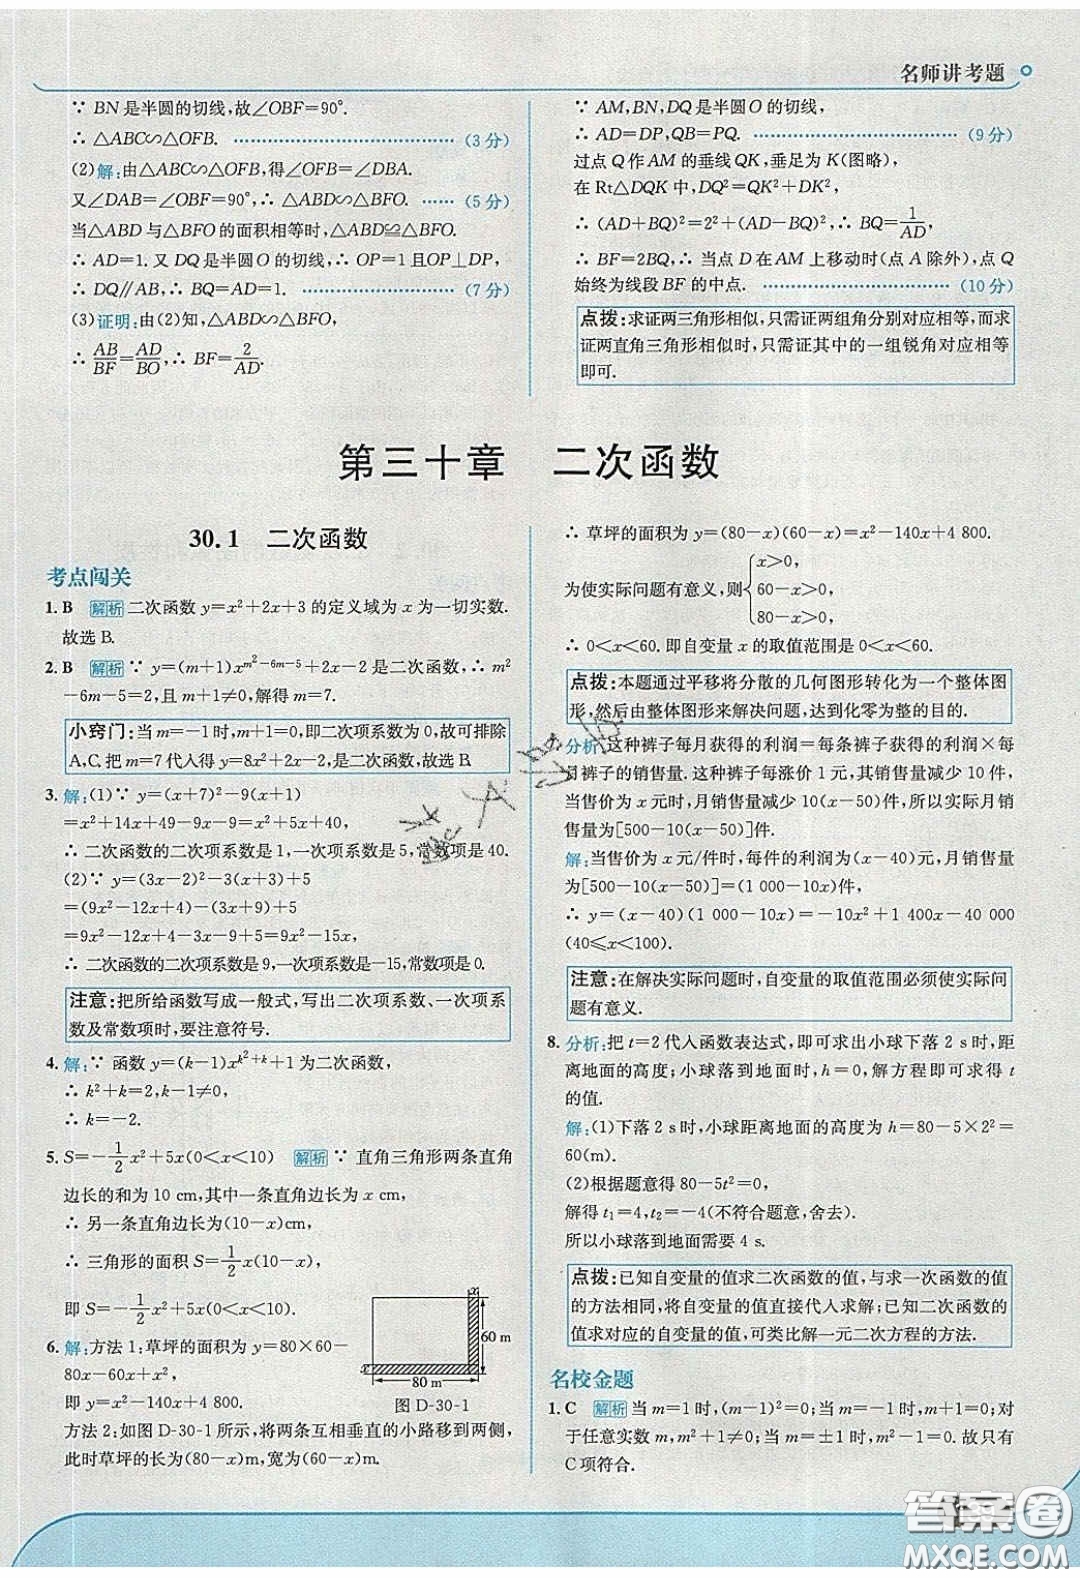 名师讲考题
∵ BN是半圆的切线,故∠OBF=90°.
∴ △ABC∽△OFB. (3分)
(2)解:由△ABC∽△OFB,得∠OFB=∠DBA.
又∠DAB=∠OBF=90°,∴ △ABD∽△BFO. (5分)
当△ABD与△BFO的面积相等时,△ABD≌△BFO.
∴ AD=1. 又DQ是半圆O的切线,∴ OP=1且OP⊥DP,
∴ DQ∥AB,∴ BQ=AD=1. (7分)
(3)证明:由(2)知,△ABD∽△BFO,
∴ AB/BF=AD/BO,∴ BF=2/AD.
∵ AM,BN,DQ是半圆O的切线,
∴ AD=DP,QB=PQ. (9分)
过点Q作AM的垂线QK,垂足为K(图略),
在Rt△DQK中,DQ²=QK²+DK²,
∴ (AD+BQ)²=2²+(AD−BQ)²,∴ BQ=1/AD,
∴ BF=2BQ,∴ 当点D在AM上移动时(点A除外),点Q
始终为线段BF的中点. (10分)
点拨:求证两三角形相似,只需证两组角分别对应相等,而求
证两直角三角形相似时,只需证其中的一组锐角对应相等
即可.
第三十章 二次函数
30.1 二次函数
考点闯关
1. B 解析 二次函数y=x²+2x+3的定义域为x为一切实数.
故选B.
2. B 解析 ∵ y=(m+1)x^(m²−6m−5)+2x−2是二次函数,∴ m²
−6m−5=2,且m+1≠0,解得m=7.
小窍门:当m=−1时,m+1=0,即二次项系数为0,故可排除
A,C. 把m=7代入得y=8x²+2x−2,是二次函数,故选B.
3. 解:(1)∵ y=(x+7)²−9(x+1)
=x²+14x+49−9x−9=x²+5x+40,
∴ 二次函数的二次项系数是1,一次项系数是5,常数项是40.
(2)∵ y=(3x−2)(3x−2)−3(x−3)+5
=(9x²−12x+4)−(3x+9)+5
=9x²−12x+4−3x−9+5=9x²−15x,
∴ 二次函数的二次项系数是9,一次项系数是−15,常数项是0.
注意:把所给函数写成一般式,写出二次项系数、一次项系
数及常数项时,要注意符号.
4. 解:∵ 函数y=(k−1)x^(k²+k)+1为二次函数,
∴ k²+k=2,k−1≠0,
∴ k=−2.
5. S=−1/2x²+5x(0<x<10) 解析 ∵ 直角三角形两条直角
边长的和为10 cm,其中一条直角边长为x cm,
∴ 另一条直角边长为(10−x)cm,
∴ 三角形的面积S=1/2x(10−x),
即S=−1/2x²+5x(0<x<10).
6. 解:方法1:草坪的面积为y=80×60−
80x−60x+x²,
即y=x²−140x+4 800.
60 m
x
80 m
图D-30-1
方法2:如图D-30-1所示,将两条互相垂直的小路移到两侧,
此时草坪的长为(80−x)m,宽为(60−x)m.
∴ 草坪的面积为y=(80−x)(60−x)=x²−140x+4 800.
为使实际问题有意义,则{x>0,
60−x>0,
80−x>0,
∴ 0<x<60. 即自变量x的取值范围是0<x<60.
点拨:本题通过平移将分散的几何图形转化为一个整体图
形,然后由整体图形来解决问题,达到化零为整的目的.
分析:这种裤子每月获得的利润=每条裤子获得的利润×每
月裤子的销售量. 这种裤子每涨价1元,其销售量减少10件,
当售价为x元时,每月销售量减少10(x−50)件,所以实际月销
售量为[500−10(x−50)]件.
解:当售价为x元/件时,每件的利润为(x−40)元,月销售量
为[500−10(x−50)]=(1 000−10x)件,
∴ y=(x−40)(1 000−10x)=−10x²+1 400x−40 000
(40≤x<100).
注意:在解决实际问题时,自变量的取值范围必须使实际问
题有意义.
8. 分析:把t=2代入函数表达式,即可求出小球下落2 s时,距
离地面的高度;小球落到地面时,h=0,解方程即可求得t
的值.
解:(1)下落2 s时,小球距离地面的高度为h=80−5×2²=
60(m).
(2)根据题意得80−5t²=0,
解得t₁=4,t₂=−4(不符合题意,舍去).
所以小球落到地面需要4 s.
点拨:已知自变量的值求二次函数的值,与求一次函数的值
的方法相同,将自变量的值直接代入求解;已知二次函数的
值求对应的自变量的值,可类比解一元二次方程的方法.
名校金题
1. C 解析 当m=1时,(m−1)²=0;当m=−1时,m+1=0;对
于任意实数m,m²+1≠0;当m=±1时,m²−1=0. 故只有
C项符合.
答案圈
MXQE.COM